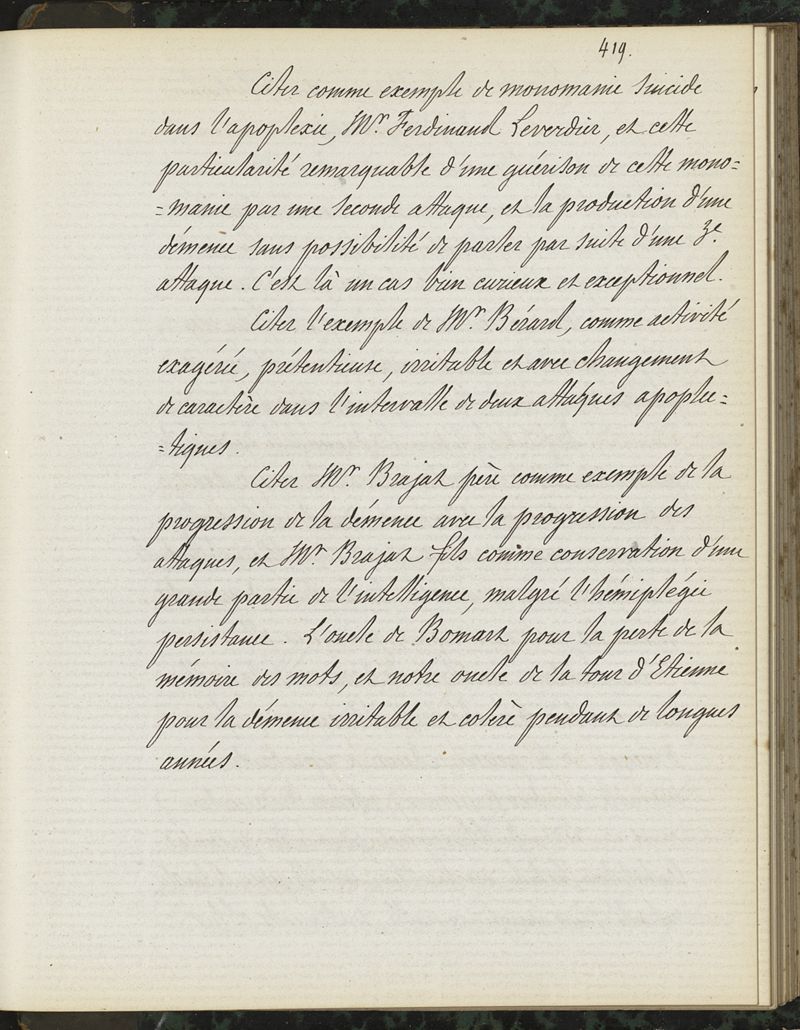 419.
Citer comme exemple de monomanie suicide
dans l'apoplexie, Mr. Ferdinand Leverdier, et cette
particularité remarquable d'une guérison de cette mono=
=manie par une seconde attaque, et la production d'une
démence sans possibilité de parler par suite d'une 3e.
attaque. C'est là un cas bien curieux et exceptionnel.
Citer l'exemple de Mr. Bérard, comme activité
exagérée, prétentieuse, irritable et avec changement
de caractère dans l'intervalle de deux attaques apoplec=
=tiques.
Citer Mr. Brajat père comme exemple de la
progression de la démence avec la progression des
attaques, et Mr. Brajat fils comme conservation d'une
grande partie de l'intelligence, malgré l'hémiplégie
persistance. L'oncle de Bomart pour la perte de la
mémoire des mots, et notre oncle de la tour d'Etienne
pour la démence irritable et colère pendant de longues
années.